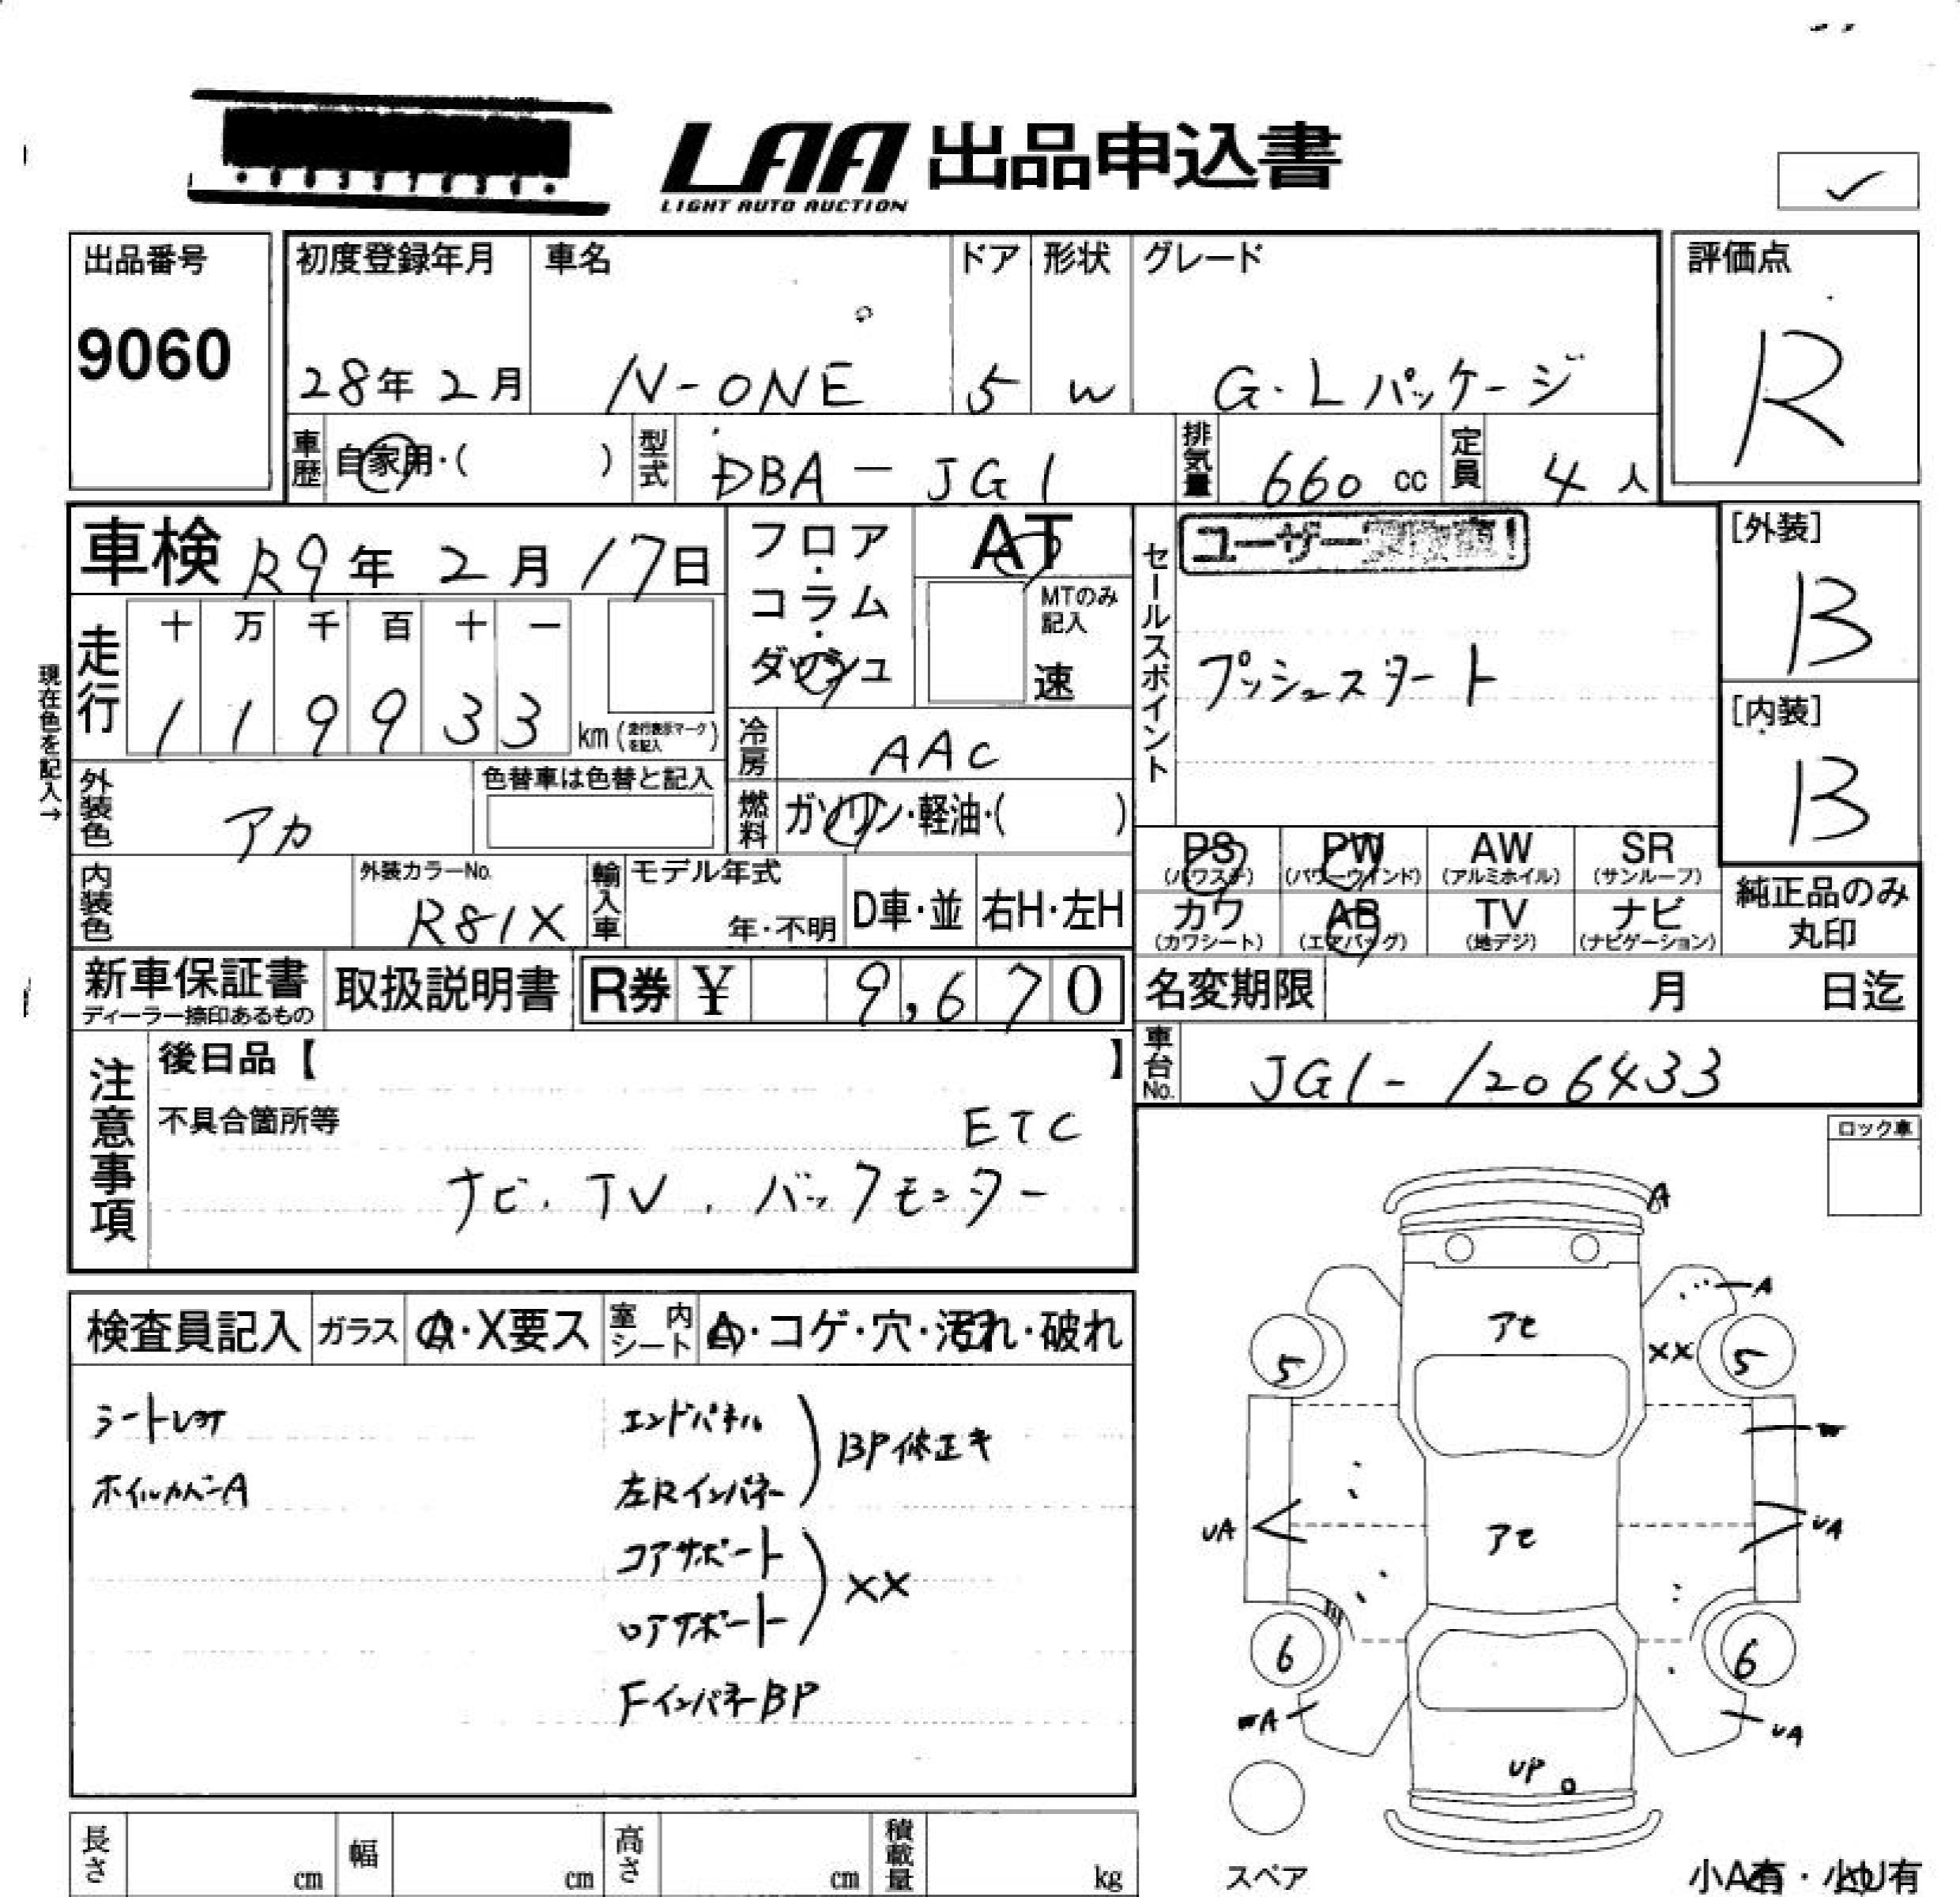 LAA 出品申込書
LIGHT AUTO AUCTION
出品番号
9060
初度登録年月
28年 2月
車名
N-ONE
ドア
5
形状
W
グレード
G・Lパッケージ
評価点
R
車歴 自家用・( )
型式 DBA-JG1
排気量 660 cc
定員 4 人
車検 R9年 2月 17日
フロア・コラム・ダッシュ
AT
MTのみ記入
速
走行
十 万 千 百 十 一
1 1 9 9 3 3 km (走行表示マークを記入)
現在色を記入→
外装色 アカ
色替車は色替と記入
冷房 AAC
燃料 ガソリン・軽油・( )
内装色
外装カラーNo.
R81X
輸入車 モデル年式
年・不明
D車・並
右H・左H
セールスポイント
ユーザー
プッシュスタート
[外装]
B
[内装]
B
PS
(パワステ)
PW
(パワーウインド)
AW
(アルミホイル)
SR
(サンルーフ)
カワ
(カワシート)
AB
(エアバッグ)
TV
(地デジ)
ナビ
(ナビゲーション)
純正品のみ
丸印
新車保証書
ディーラー捺印あるもの
取扱説明書
R券 ¥ 9,670
名変期限 月 日迄
車台No. JG1-1206433
注意事項
後日品【 】
不具合箇所等
ETC
ナビ. TV. バックモニター
ロック車
検査員記入
ガラス A・X要ス
室内シート A・コゲ・穴・汚れ・破れ
ホイルカバーA
エンドパネル
左Rインパネー
BP修正キ
コアサポート
ロアサポート
XX
FインパネーBP
A
A
アセ
XX
5
5
W
UA
アセ
UA
6
6
A
UA
UP
スペア
小A有・小U有
長さ cm
幅 cm
高さ cm
積載量 kg